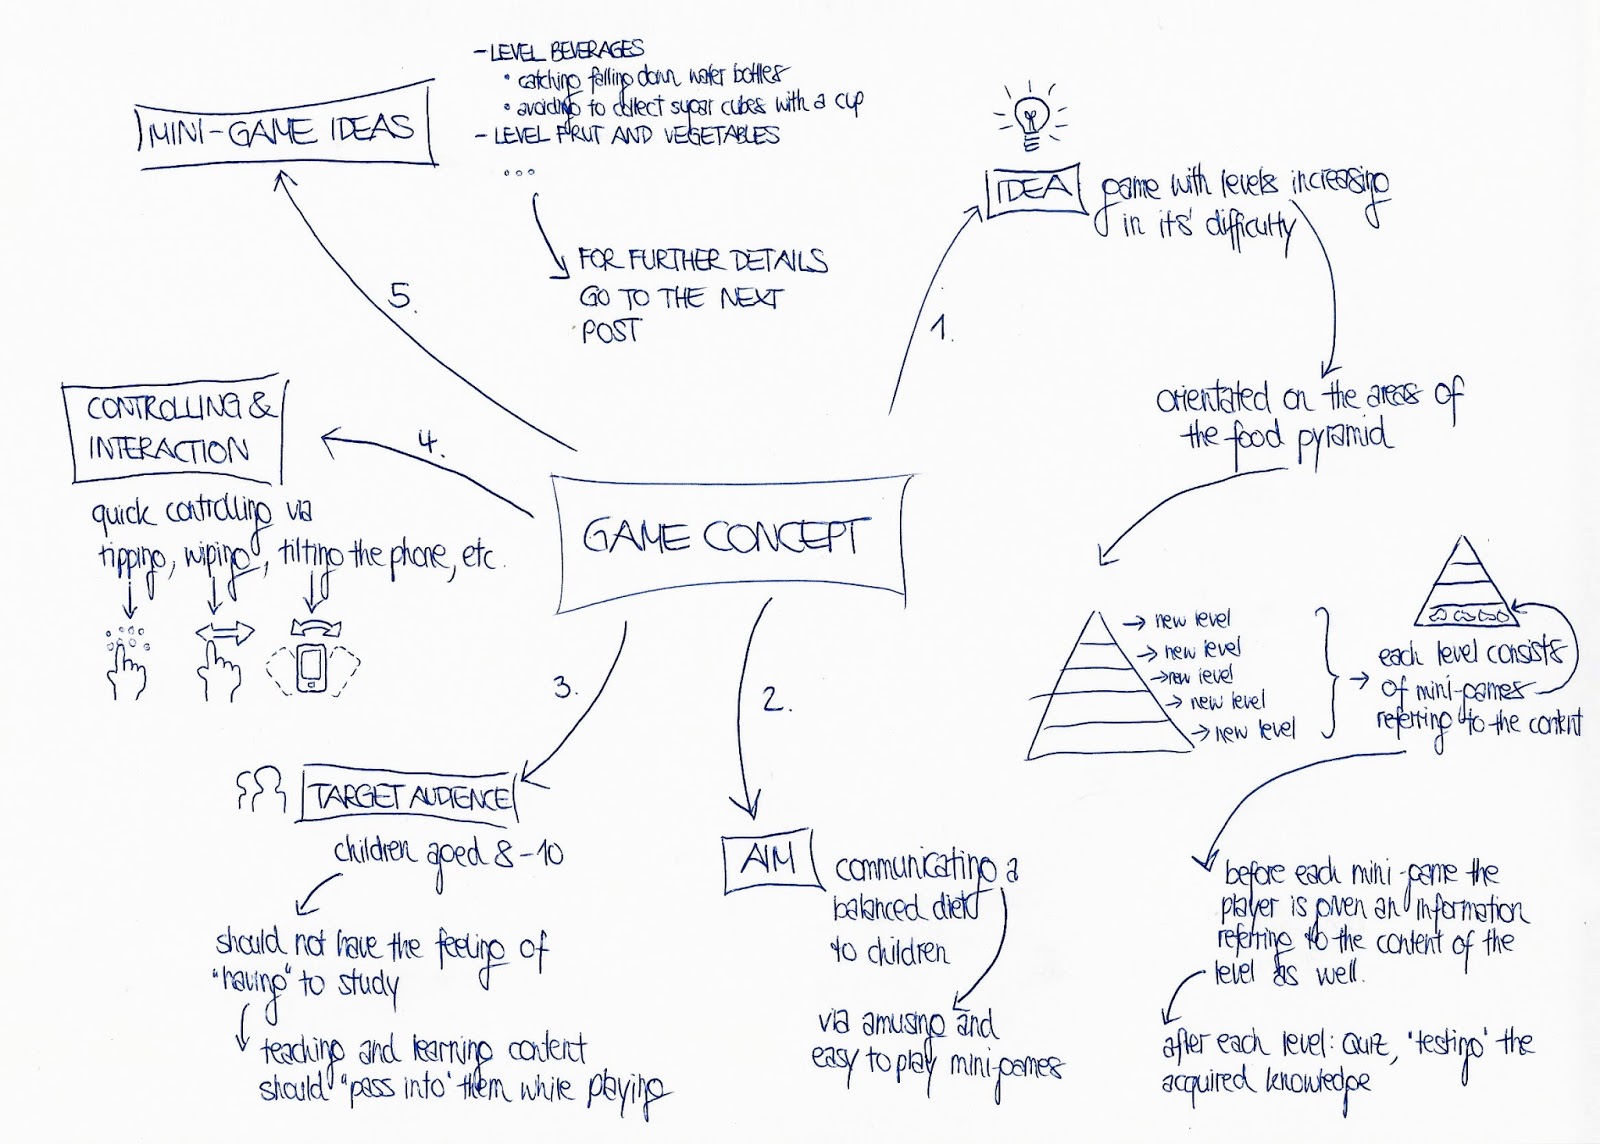 GAME CONCEPT
1.
IDEA
game with levels increasing
in its' difficulty
orientated on the areas of
the food pyramid
→ new level
→ new level
→ new level
→ new level
→ new level
→ each level consists
of mini-games
referring to the content
before each mini-game the
player is given an information
referring to the content of the
level as well.
after each level: Quiz, "testing" the
acquired knowledge
2.
AIM
communicating a
balanced diet
to children
via amusing and
easy to play mini-games
3.
TARGET AUDIENCE
children aged 8-10
should not have the feeling of
"having" to study
teaching and learning content
should "pass into" them while playing
4.
CONTROLLING &
INTERACTION
quick controlling via
tipping, wiping, tilting the phone, etc.
5.
MINI-GAME IDEAS
- LEVEL BEVERAGES
• catching falling down water bottles
• avoiding to collect sugar cubes with a cup
- LEVEL FRUIT AND VEGETABLES
...
FOR FURTHER DETAILS
GO TO THE NEXT
POST